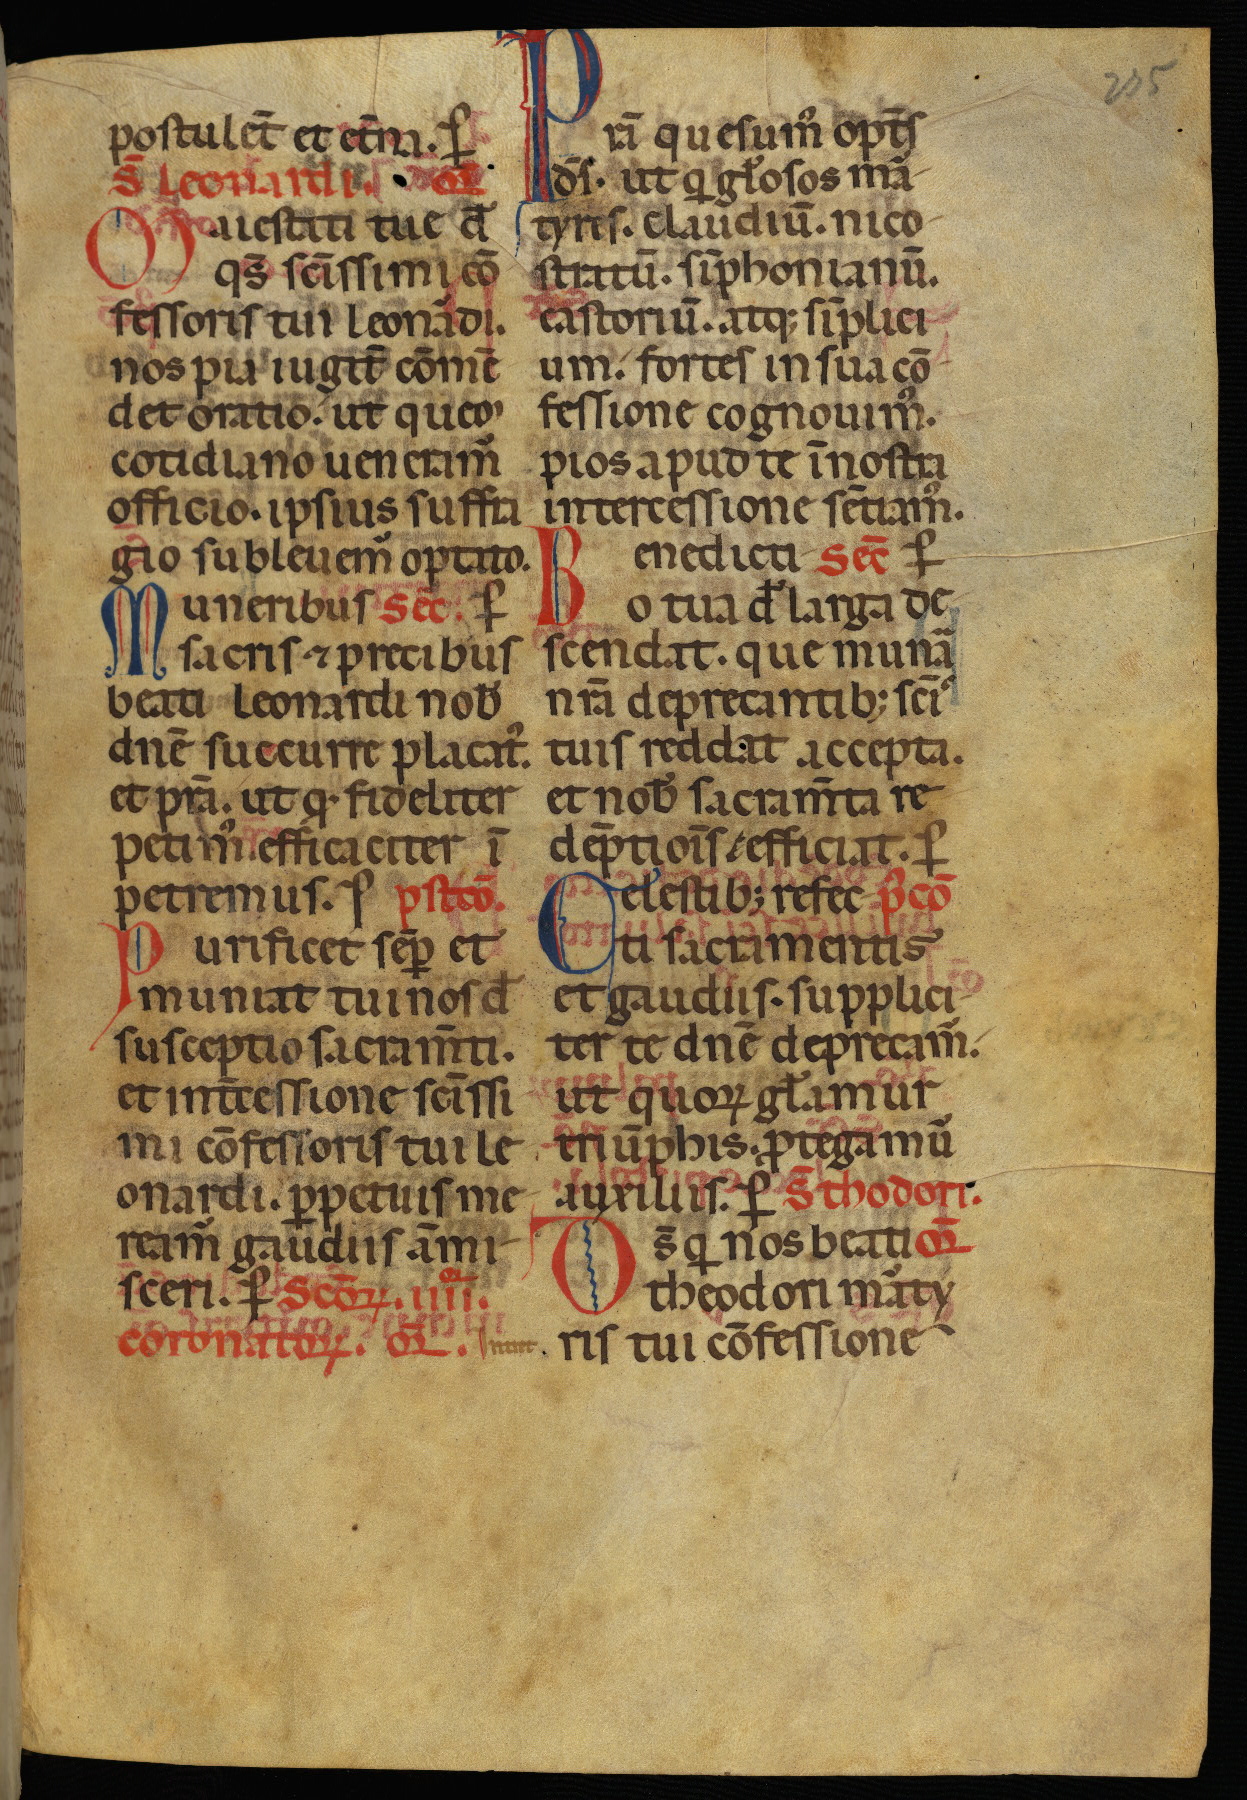 postulet̄ et et̄na. ꝑ
S̄ Leonardi. or̄
Maiestati tue d̄
qs̄ sc̄issimi cō
fessoris tui leonādi.
nos pia iugit̄ cōmē
det oratio. ut queꝫ
cotidiano ueneram᷒
officio. ipsius suffra
gio subleuem᷒ optato.
Muneribus Sec̄. ꝑ
sacris ⁊ precibus
beati leonardi nob̄
dnē succurre placat᷒.
et pr̄a. ut q̄ fideliter
petim᷒ efficaciter ī
petremus. ꝑ pstcō.
Purificet sēp et
muniat tui nos d̄
susceptio sacram̄ti.
et int̄cessione sc̄issi
mi cōfessoris tui le
onardi. ꝑpetuis me
ream᷒ gaudiis āmi-
sceri. ꝑ Scōꝝ. iiiioꝛ.
coronatoꝝ. or̄.
Pr̄a quesum᷒ opt̄s
ds̄. ut qi gl̄osos mā-
tyres. claudiū. nico-
stratū. sīphonianū.
castoriū. atq; sīplici
um. fortes in sua cō-
fessione cognouim᷒.
pios apud te ī nostra
intercessione sētiam᷒.
Benedicti Sec̄ ꝑ
o tua d̄ larga de-
scendat. que munā
nr̄a deprecantib; scīs
tuis reddat accepta.
et nob̄ sacram̄ta re-
dēptiōis efficiat. ꝑ
Celestib; refec p᷒cō
ti sacramentis
et gaudiis. supplici-
ter te dnē deprecam᷒.
ut quoꝝ gl̄amur
triūphis. ꝓtegamū
auxiliis. ꝑ S̄ thodori.
Ds̄ qi nos beati or̄
theodori māty
ris tui cōfessione